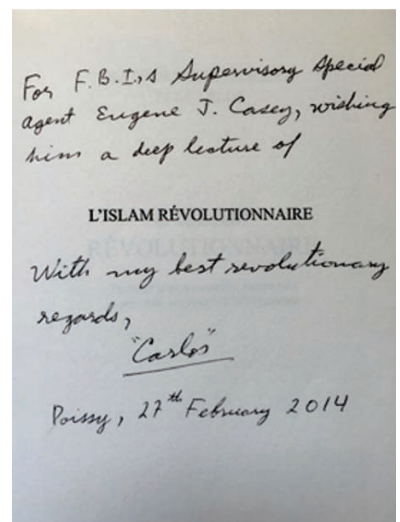 For F.B.I.,s Supervisory Special
agent Eugene J. Casey, wishing
him a deep lecture of
L'ISLAM RÉVOLUTIONNAIRE
With my best revolutionary
regards,
"Carlos"
Poissy, 27th February 2014